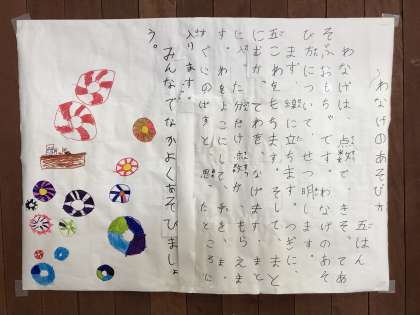 わなげのあそび方
五はん
わなげは、点数できそってあ
そぶおもちゃです。わなげのあそ
び方について、せつ明します。
まず、線に立ちます。つぎに、
五こわをもちます。そして、まと
にむかってわをなげます。まと
に、た分だけ点数が、もらえま
す。わをよこにして、手を、ま
すぐにのばすと、思ったところに
入ります。
みんなでなかよくあそびましょ
う。